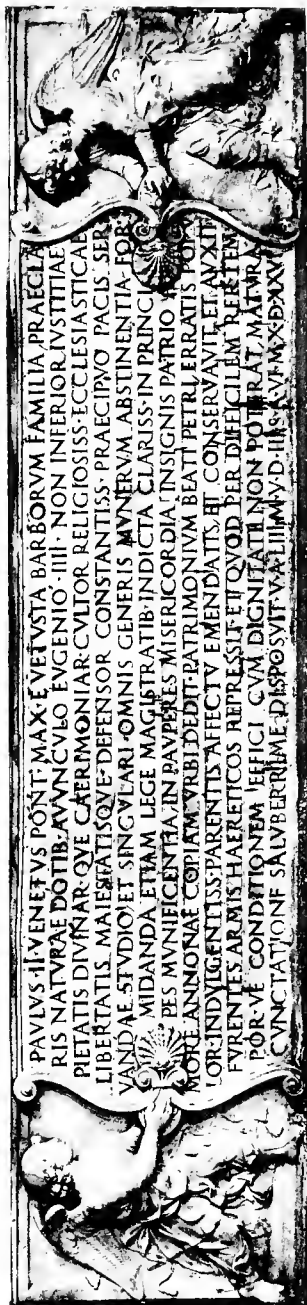 PAVLVS·II·VENETVS PONT·MAX·E VETVSTA BARBORVM FAMILIA PRAECLA
RIS NATVRAE DOTIB·AVVNCVLO EVGENIO·IIII·NON INFERIOR IVSTITIAE
PIETATIS DIVINAR·QVE CAERIMONIAR·CVLTOR RELIGIOSISS·ECCLESIASTICAE
LIBERTATIS MAIESTATISQVE·DEFENSOR CONSTANTISS·PRAECIPVO PACIS SER
VANDAE·STVDIO ET SINGVLARI·OMNIS GENERIS MVNERVM ABSTINENTIA·FOR
MIDANDA ETIAM LEGE MAGISTRATIB·INDICTA CLARISS·IN PRINCI
PES MVNIFICENTIA·IN PAVPERES MISERICORDIA INSIGNIS PATRIO
MORE ANNONAE COPIAM VRBI DEDIT·PATRIMONIVM BEATI PETRI ERRATIS POP
LOR·INDVLGENTISS·PARENTIS AFFECTV EMENDATIS ET CONSERVAVIT·ET AVXIT
FVRENTES ARMIS HAERETICOS REPRESSIT·ET QVOD PER DIFFICILEM RER·TEM
POR·VE CONDITIONEM EFFICI CVM DIGNITATE NON POTERAT MATVRA
CVNCTATIONE SALVBERRIME DISPOSVIT·V·A·LIII·M·V·D·